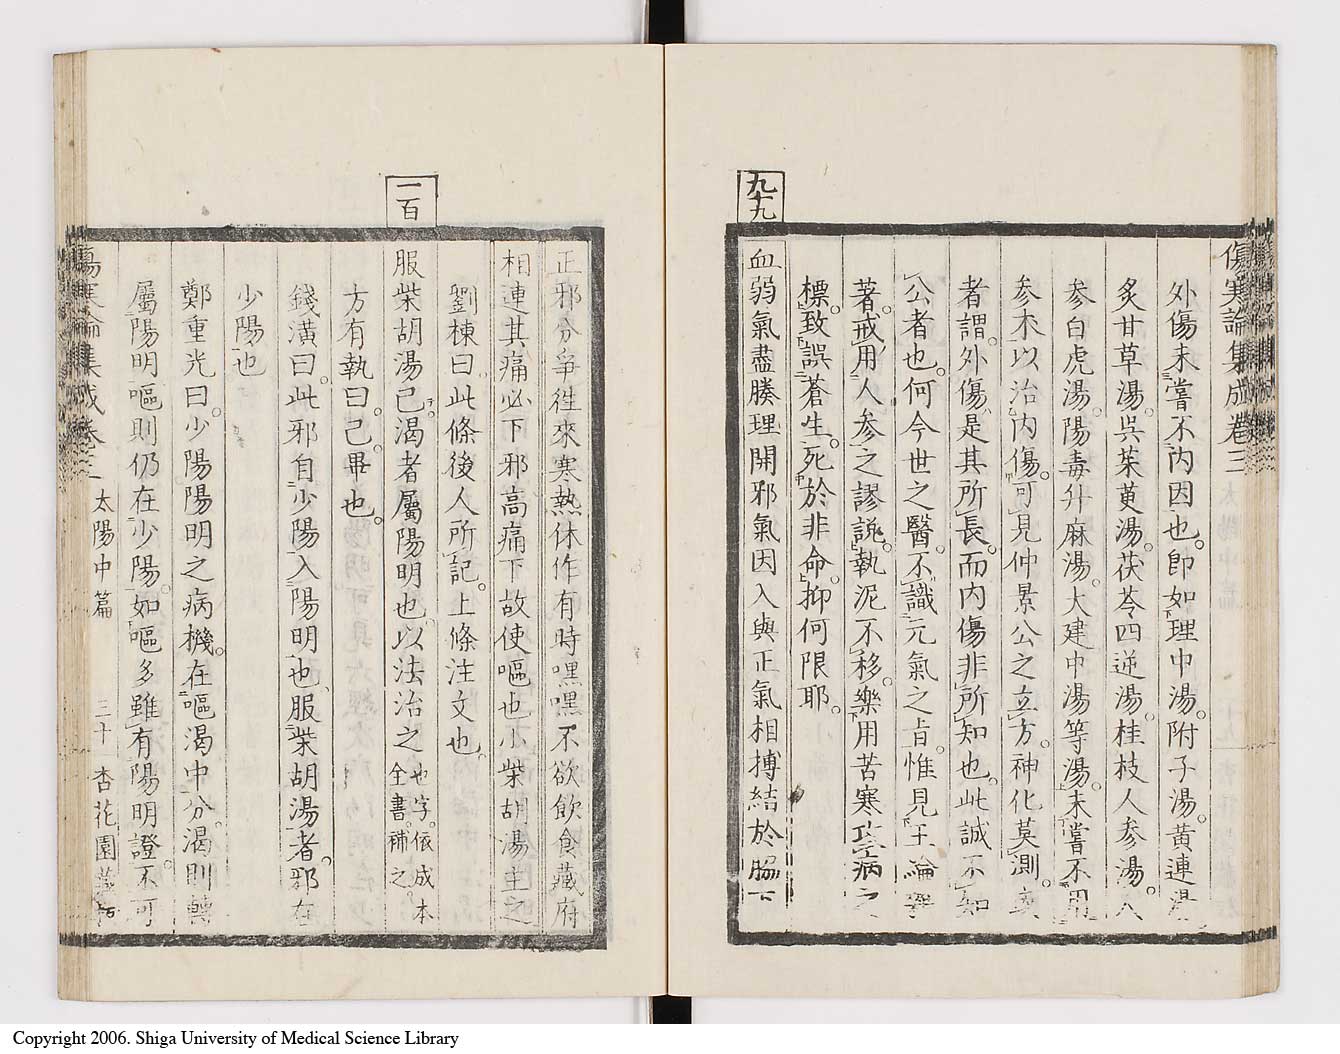 傷寒論集成卷三
外傷未嘗不內因也。即如理中湯。附子湯。黃連湯
炙甘草湯。呉茱黄湯。茯苓四逆湯。桂枝人参湯。人
参白虎湯。陽毒升麻湯。大建中湯等湯。未嘗不用
参朮以治内傷。可見仲景公之立方。神化莫測。
者謂外傷是其所長。而内傷非所知也。此誠不知
公者也。何今世之醫。不識元氣之旨。惟見王論
著。戒用人参之謬説。執泥不移。樂用苦寒攻病之
標。致誤蒼生。死於非命。抑何限耶。
九十九
血弱氣盡腠理開邪氣因入與正氣相搏結於脇下
正邪分爭徃來寒熱休作有時嘿嘿不欲飲食藏府
相連其痛必下邪高痛下故使嘔也小柴胡湯主之
劉棟曰此條後人所記。上條注文也。
一百
服柴胡湯已。渴者屬陽明也。以法治之 也字。依成本全書。補之。
方有執曰。已。畢也。
錢潢曰。此邪自少陽入陽明也。服柴胡湯者。邪在
少陽也
鄭重光曰。少陽陽明之病機。在嘔渴中分。渴則轉
屬陽明嘔則仍在少陽。如嘔多雖有陽明證。不可
傷寒論集成卷三 太陽中篇 三十 杏花園
Copyright 2006. Shiga University of Medical Science Library